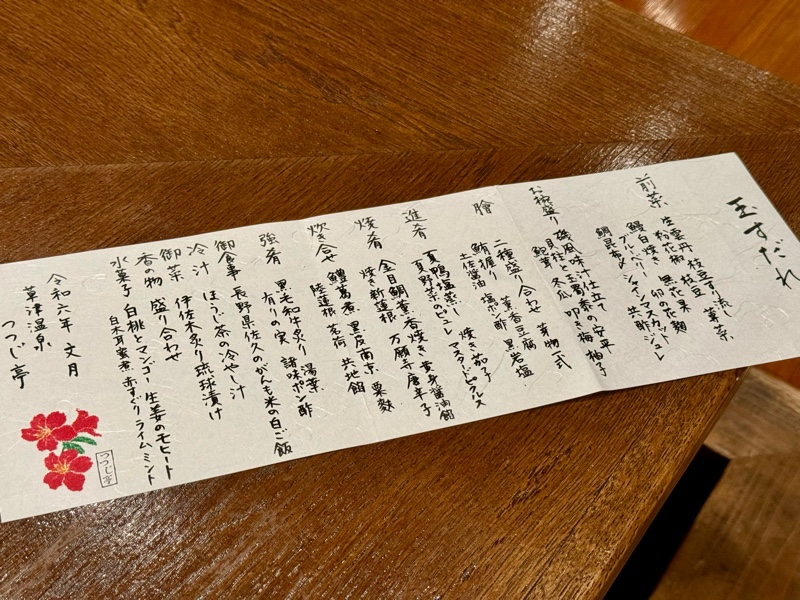 玉すだれ
前菜
生雲丹 枝豆すり流し 蓴菜
粉花椒 枝豆 無花果
鰻白焼き 卯の花麹
ブルーベリー シャインマスカット
鯛昆布〆 共酢ジュレ
お椀盛り 磯風味汁仕立て
帆立 貝柱と玉蜀黍の安平
鮑茸 冬瓜 叩き梅 柚子
膾 二種盛り合わせ 芽物一式
鮪握り 薫香豆腐 黒岩塩
土佐醤油 塩ポン酢 焼き茄子
進肴 夏鴨塩蒸し
夏野菜のピュレ マスタードピクルス
焼肴 金目鯛薫香焼き 黄身醤油餡
焼き新蓮根 万願寺唐辛子
炊き合せ 鱧葛煮 黒皮南京 粟麩
陸蓮根 茗荷 共地餡
強肴 黒毛和牛炙り 湯葉
有りの実 諸味ポン酢
御食事 長野県佐久のがんも米の白ご飯
冷汁 ほうじ茶の冷やし汁
御菜 伊佐木炙り琉球漬け
香の物 盛り合わせ
水菓子 白桃とマンゴー 生姜のモヒート
白木耳蜜煮 赤すぐり ライム ミント
令和六年 文月
草津温泉
つつじ亭
つつじ亭